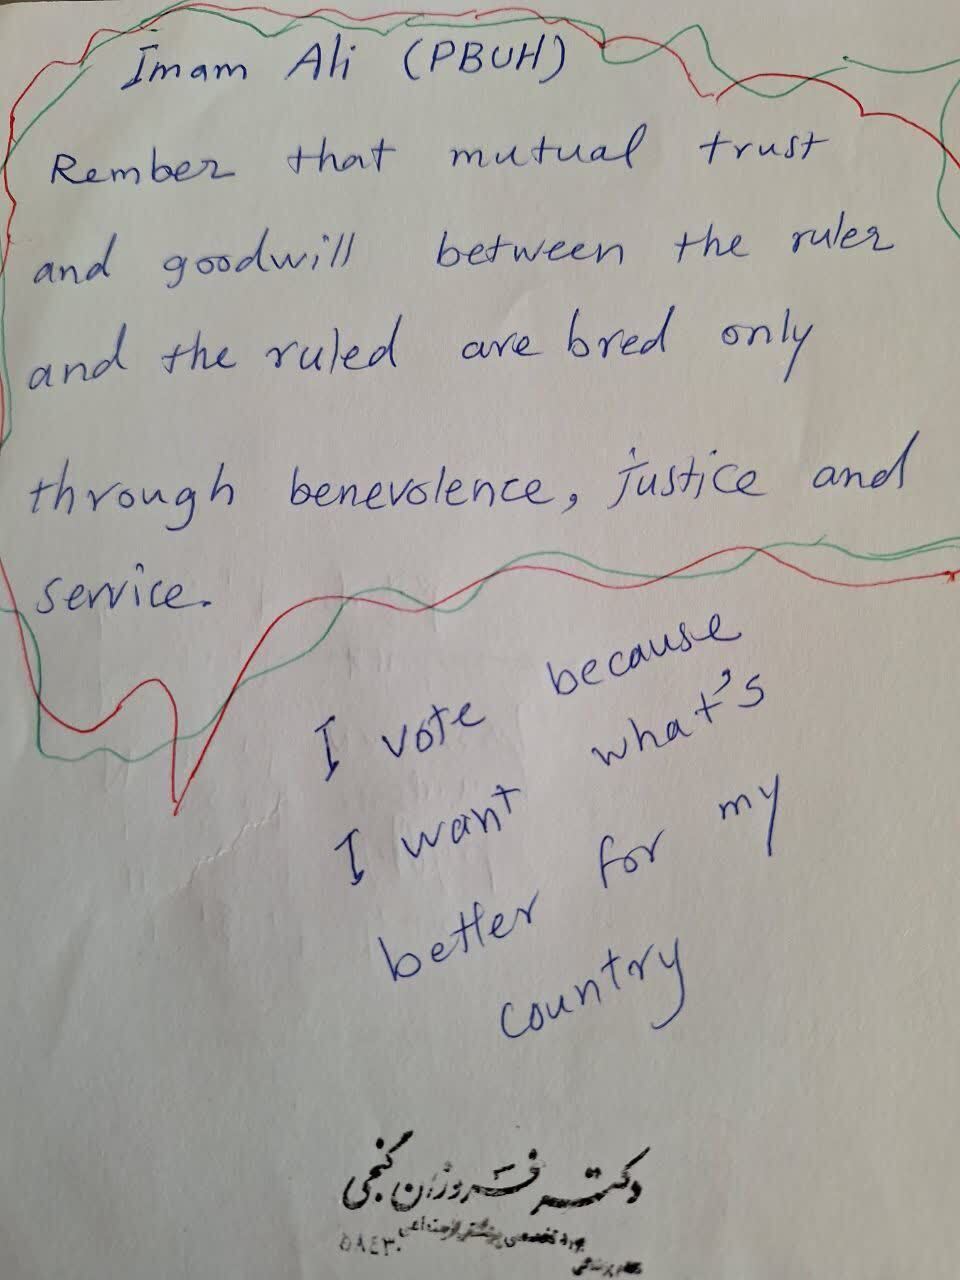 Imam Ali (PBUH)
Rember that mutual trust
and goodwill between the ruler
and the ruled are bred only
through benevolence, justice and
service.
I vote because
I want what's
better for my
country
دکتر فروزان گنجی
پزشکی اجتماعی
۵۸۴۳۰